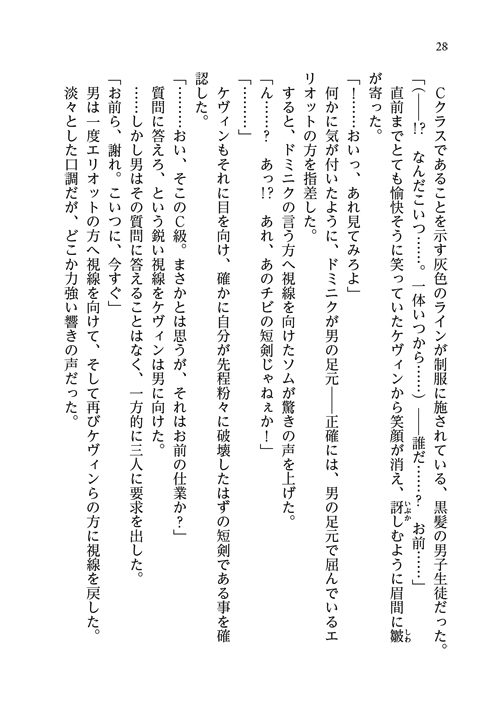 28
Cクラスであることを示す灰色のラインが制服に施されている、黒髪の男子生徒だった。
「(――!? なんだこいつ……。一体いつから……)――誰だ……? お前……」
直前までとても愉快そうに笑っていたケヴィンから笑顔が消え、訝しむように眉間に皺
が寄った。
「！……おいっ、あれ見てみろよ」
何かに気が付いたように、ドミニクが男の足元――正確には、男の足元で屈んでいるエ
リオットの方を指差した。
すると、ドミニクの言う方へ視線を向けたソムが驚きの声を上げた。
「ん……? あっ!? あれ、あのチビの短剣じゃねぇか！」
「………」
ケヴィンもそれに目を向け、確かに自分が先程粉々に破壊したはずの短剣である事を確
認した。
「………おい、そこのC級。まさかとは思うが、それはお前の仕業か?」
質問に答えろ、という鋭い視線をケヴィンは男に向けた。
……しかし男はその質問に答えることはなく、一方的に三人に要求を出した。
「お前ら、謝れ。こいつに、今すぐ」
男は一度エリオットの方へ視線を向けて、そして再びケヴィンらの方に視線を戻した。
淡々とした口調だが、どこか力強い響きの声だった。